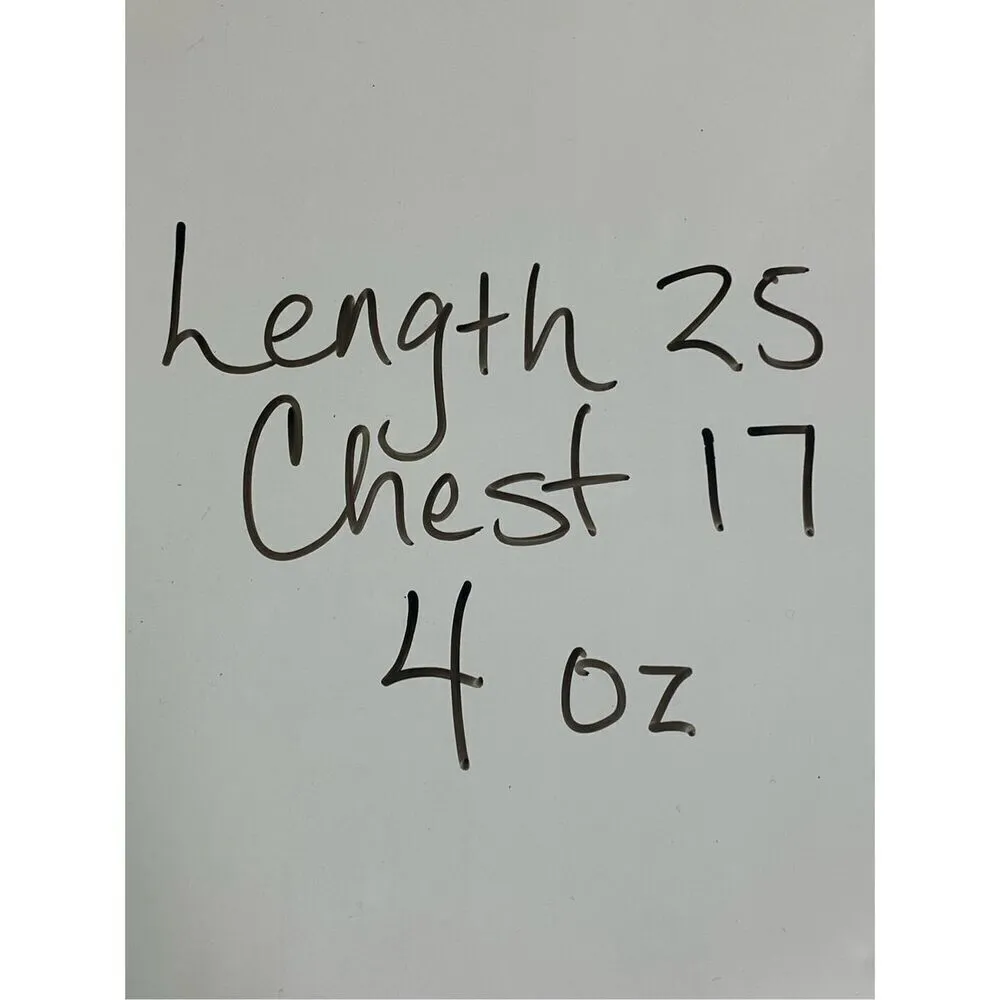 Length 25
Chest 17
4 oz